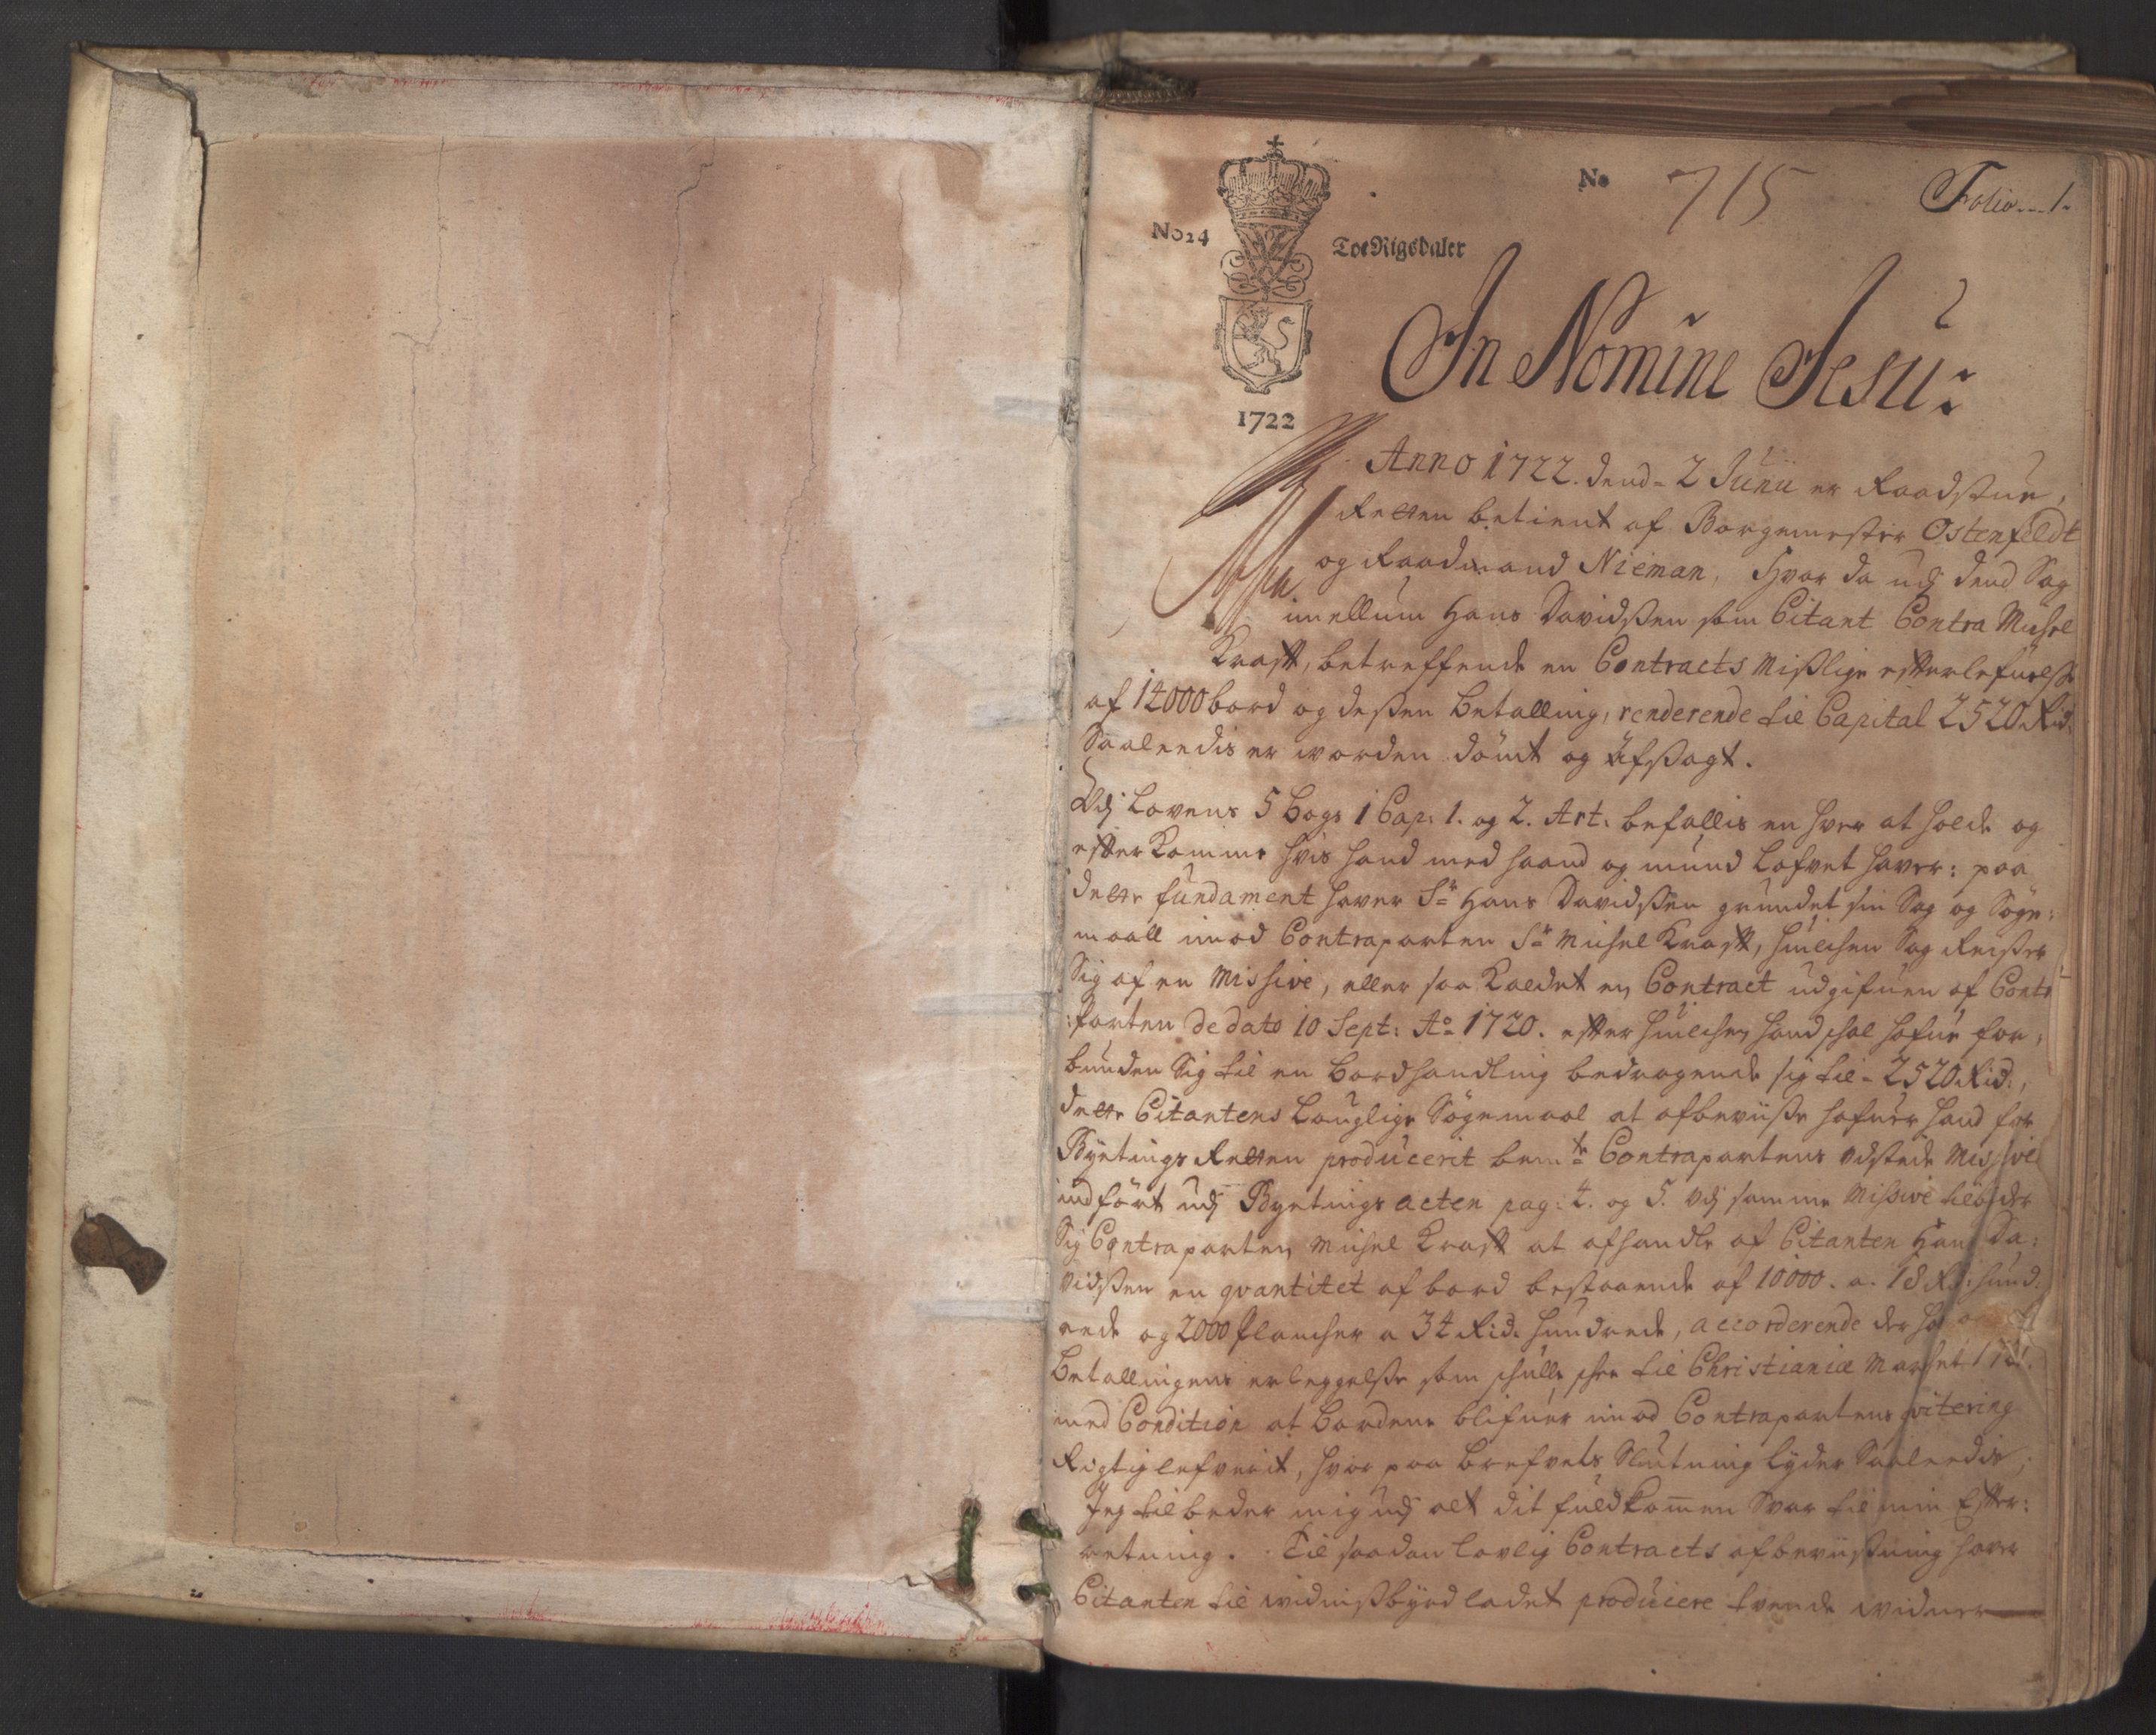 No 715
Folio...1.
No24
Toe Rigsdaler
In Nomine Jesu:
1722
Anno 1722. dend= 2 Junii er Raadstue,
Retten betient af Borgemester Ostenfeldt
og Raadmand Nieman, Hvor da udj dend Sag
imellum Hans Davidßen som Citant Contra Michel
Krafft, betreffende en Contracts Mißlige efterlefuelse
af 12000 bord og deßen betalling, renderende til Capital 2520 Rid.
Saaleedis er worden dömt og afßagt.
Udj Lovens 5 Bogs 1 Cap: 1. og 2. Art: befallis en hver at holde og
efterkomme hvis hand med haand og mund lofvet haver: paa
dette fundament haver Sr Hans Davidßen grundet sin Sag og Söge:
maall imod Contraparten Sr Michel Krafft, huilchen Sag Reißer
Sig af en Missive, eller saa kaldet en Contract udgifuen af Contr
:parten de dato 10 Sept: Ao 1720. efter huilchen hand schal hafue for,
bunden Sig til en bordhandling bedragende sig til= 2520 Rid.,
dette Citantens lauglige Sögemaal at afbeviiße hafuer hand for
Byetings Retten producerit bemte Contrapartens Udstede Missive
indfört udj Byetings acten pag: 4. og 5. Udj samme Missive tilbyder
Sig Contraparten Michel Krafft at afhandle af Citanten Hans Da:
vidßen en qvantitet af bord bestaaende af 10000. a. 18 Rd: hund:
rede og 2000 Plancher a 34 Rid. hundrede, accorderende der hos
betallingens erleggelße som schulle schee til Christianiæ Marchet
med Condition at bordene blifuer imod Contrapartens qvitering
Rigtig lefverit, hvor paa brefvets Slutning lyder Saaleedis,
Jeg til beder mig udj alt dit fuldkommen Svar til min Efter:
retning. Til saadan lovlig Contracts afbeviißning haver
Citanten til widnißbyrd ladet producere tvende widner